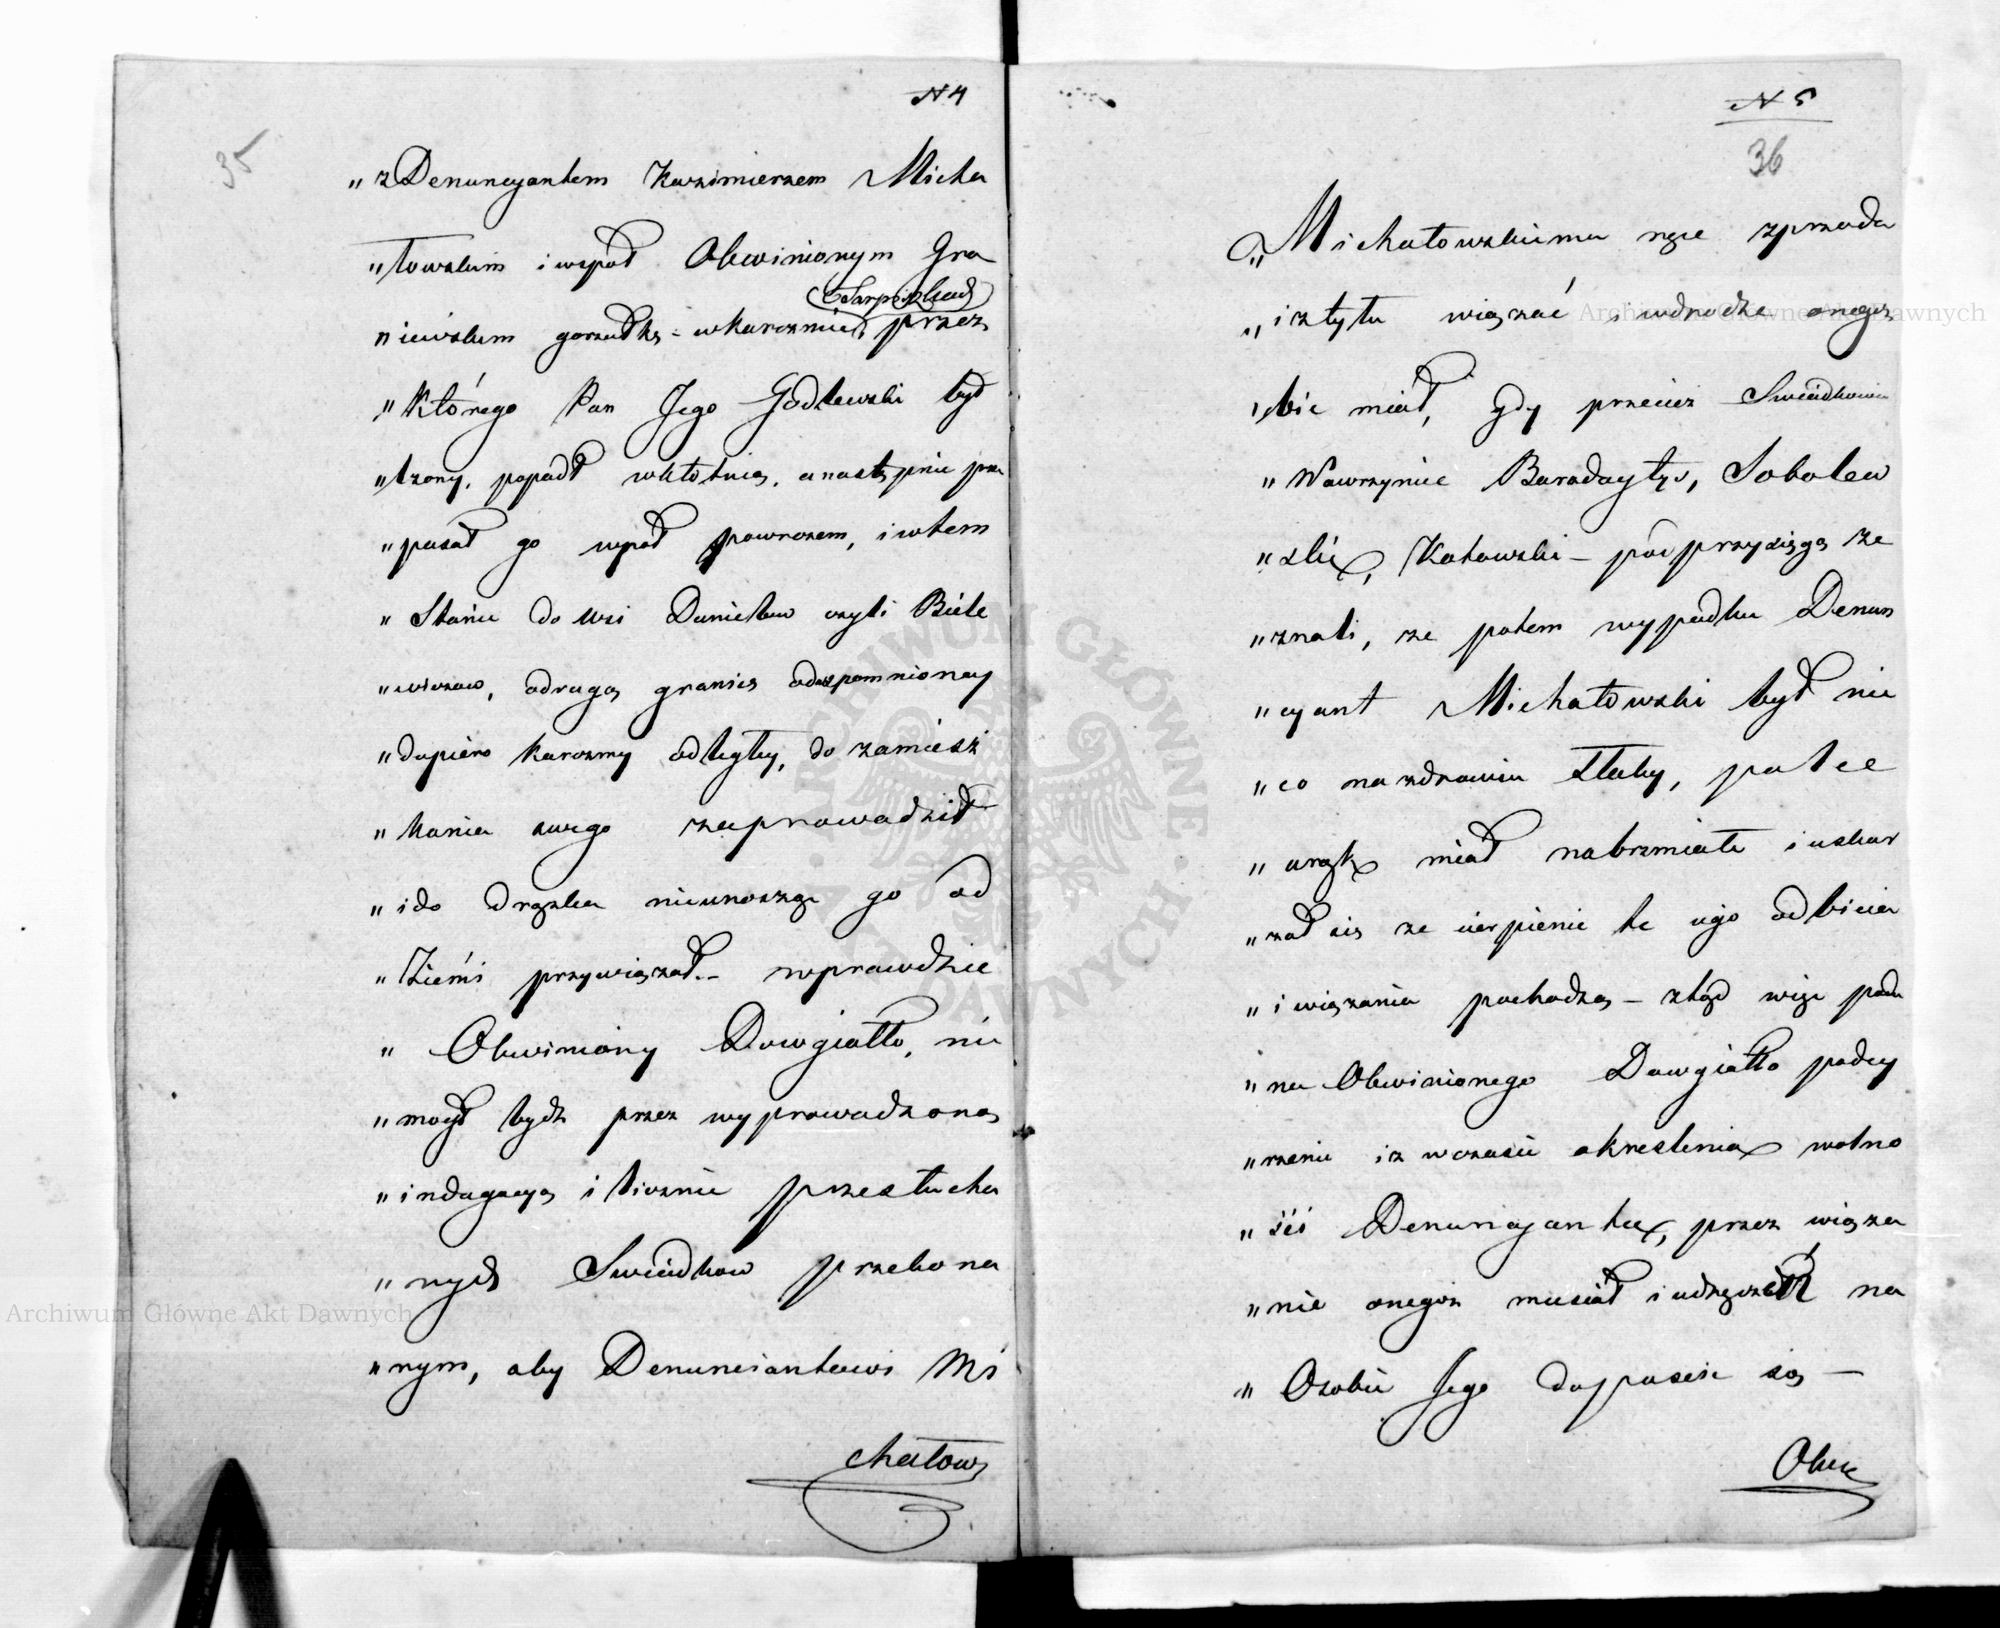 N 4
35
„z Denuncyantem Kazimierzem Micha
„łowskim i wspoł Obwinionym Gra
„iewskim gorzułkę - w karczmie, przez
„Którego Pan Jego Godlewski był
„bzony, popadł w kłotnią, a nastę pnie prze
„pasał go wpoł powrozem, i w tem
„Stanie do wsi Danielow czyli Biele
„wiczow, o drugą granicę od wspomnioney
„dopiero Karczmy odległey, do zamiesz
„kania swego zaprowadził
„i do drążka nieunosząc go od
„Ziemi przywiązał. - wprawdzie
„Obwiniony Dowgiałło, nie
„mogł bydz przez wyprowadzoną
„indagacyą i licznie przesłucha
„nych Swiadkow przekona
„nym, aby Denunciantowi Mi
chałow
N 5
36
„Michałowskiemu ręce z przodu
„i z tyłu wiązać i w drodze onegoż
„bić miał, gdy przecież Swiadkowie
„Wawrzyniec Baradaytys, Sobolew
„ski, Kotowski - pod przysięgą ze
„znali, ze potem wypadku Denun
„cyant Michałowski był nie
„co na zdrowiu słaby, palce
„u rąk miał nabrzmiałe i uskar
„zał się ze cierpienie te iego od bicia
„i wiązania pochodzą - ztąd więc pada
„na Obwinionego Dowgiałło podey
„rzenie iz w czasie okreslenia wolno
„ści Denuncyanta, przez wiąza
„nie onegoz musiał i udręczeń na
„Osobie Jego dopuscić się -
Obw
Archiwum Główne Akt Dawnych
Archiwum Główne Akt Dawnych
ARCHIWUM GŁÓWNE AKT DAWNYCH